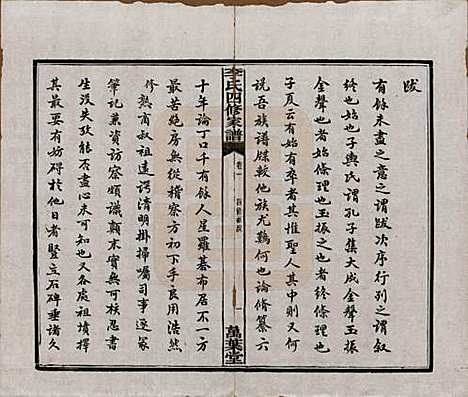 跋
有餘未盡之意之謂跋次序行列之謂叙
終也始也子輿氏謂孔子集大成金聲玉振
金聲也者始條理也玉振之也者終條理也
子夏云有始有卒者其惟聖人其中則又何
說吾族譜牒較他族尤難何也論修纂六
李氏四修家譜
卷一
萬葉堂
十年論丁口千有餘人星羅棊布居不一方
最苦絕房無從稽察方初下手良用浩然
修熟甫叔祖遠諤清明掛掃囑司事逐冢
筆記兼資訪察頗識顛末實無可核忍書
生沒失攷能否盡心未可知也又各處祖墳擇
其最有妨碍者於他日豎立石碑垂諸久